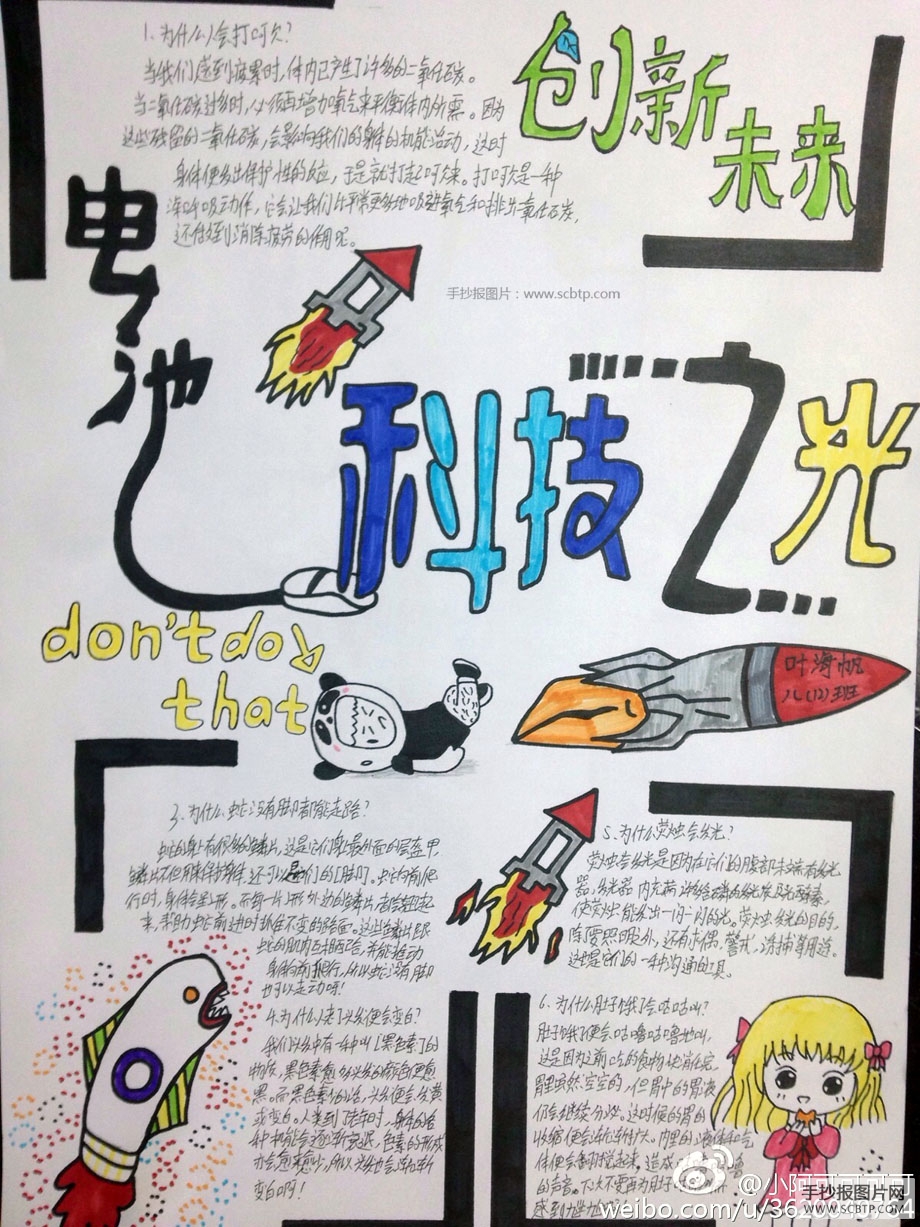 1.为什么人会打呵欠?
当我们感到疲累时,体内已产生了许多的二氧化碳。
当二氧化碳过多时,必须再增加氧气来平衡体内所需。因为
这些残留的二氧化碳,会影响我们的身体的机能活动,这时
身体便发出保护性的反应,于是就打起呵欠来。打呵欠是一种
深呼吸动作,它会让我们比平常更多地吸进氧气和排出二氧化碳,
还作到消除疲劳的作用呢。
创新
未来
电池
手抄报图片:www.scbtp.com
科技之光
don't do
that
叶海帆
八(12)班
3.为什么蛇没有脚都能走路?
蛇的身上有很多的鳞片,这是它们身上最外面的一层盔甲。
鳞片不但用来保护身体,还可以是们的脚。蛇向前爬
行时,身体会呈形。而每一片形外边的鳞片都会翘起
来,帮助蛇前进时抓住不变的路面。这些鳞片跟
蛇的肌肉互相配合,并能推动
身体向前爬行,所以蛇没有脚
也可以走动呀!
4.为什么人老了头发便会变白?
我们头发中有一种叫「黑色素」的
物质,黑色素愈多头发的颜色便愈
黑。而黑色素少的话,头发便会发黄
或变白。人类到了老年时,身体的各
种机能会逐渐衰退,色素的形成
亦会愈来愈少,所以头发也会逐渐
变白啊!
5.为什么萤烛会发光?
萤烛会发光是因为在它们的腹部末端有发光
器,发光器内充满许多含磷的发光质及发光酵素,
使萤烛能发出一闪一闪的光。萤火虫发光的目的,
除要照明之外,还有求偶、警戒、诱捕等用途。
这也是它们的一种沟通的工具。
6.为什么肚子饿了会咕咕叫?
肚子饿了便会咕噜咕噜地叫,
这是因为之前吃的食物快消化完,
胃里虽然空空的,但胃中的胃液
仍会继续分泌。这时候的胃的
收缩便会逐渐扩大。内里的液体和气
体便会翻搅起来,造成
的声音。下次不要再为肚子
感到
@小阿可可可可
weibo.com/u/36
手抄报图片网
WWW.SCBTP.COM